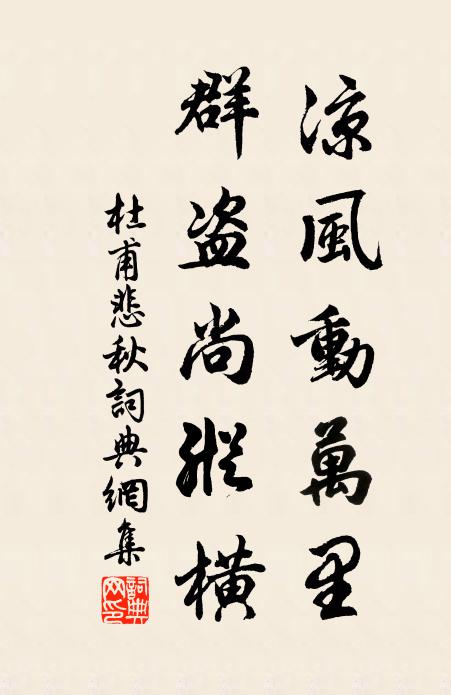 涼風動萬里
群盗尚縱橫
杜甫悲秋詞典網集